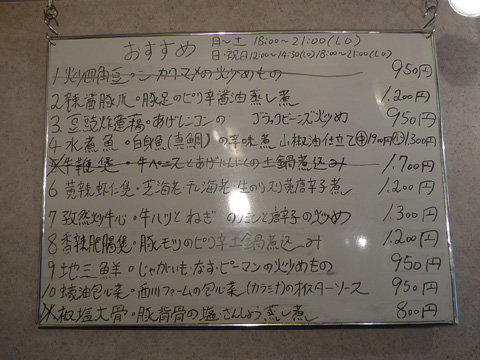 おすすめ 日〜土 18:00〜21:00(LO)
日・祝日12:00〜14:30(LO)18:00〜21:00(LO)
1 炒四角豆・シカクマメの炒めもの 950円
2 辣醤豚爪・豚足のピリ辛醤油蒸し煮 1,200円
3. 豆豉炸蓮藕・あげレンコンのブラックビーンズ炒め 950円
4 水煮魚・白身魚(真鯛)の辛味煮 山椒油仕立て 中1900円 小1300円
牛雑煲・牛ハチノスとあげにんにくの土鍋煮込み 1,700円
6 黄辣蝦仁煲・芝海老・干し海老・生のり入り黄唐辛子煮 1,200円
7 孜然炒牛心・牛ハツとねぎのクミンと唐辛子の炒め 1,300円
8 香辣肥腸煲・豚モツのピリ辛土鍋煮込み 1,200円
9 地三鮮・じゃがいも・なす・ピーマンの炒めもの 950円
10 蠔油包心菜・西川ファームの包心菜(カラシナ)のオイスターソース 950円
椒塩大骨・豚背骨の塩・さんしょう蒸し煮 800円